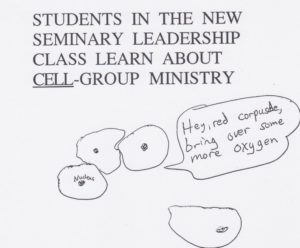 STUDENTS IN THE NEW
SEMINARY LEADERSHIP
CLASS LEARN ABOUT
CELL-GROUP MINISTRY
Hey, red corpuscle,
bring over some
more oxygen
Nucleus